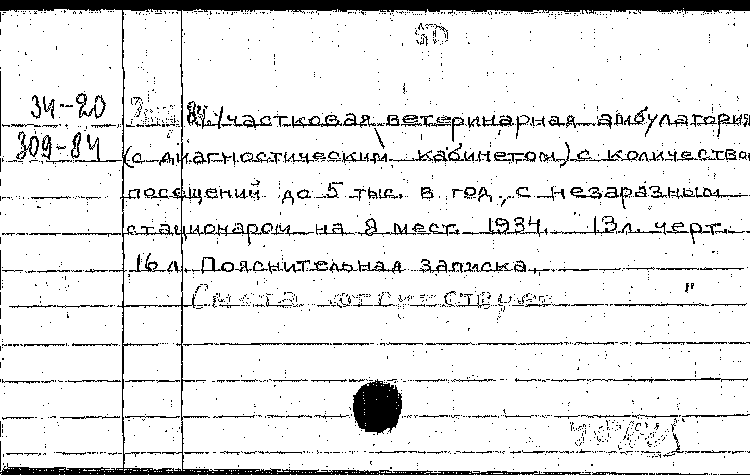 34-20
309-84
84. Участковая ветеринарная амбулатория
(с диагностическим кабинетом) с количеством
посещений до 5 тыс. в год, с незаразным
стационаром на 8 мест. 1934. 13л. черт.
16 л. Пояснительная записка.
Смета отсутствует "